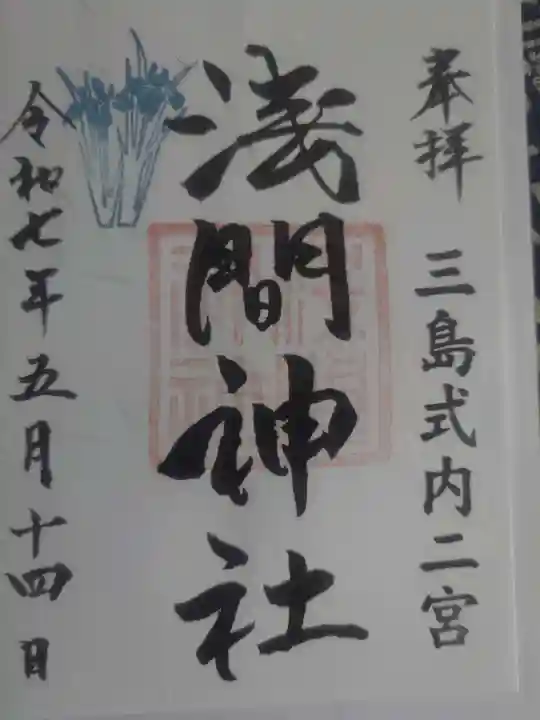 奉拝　三島式内二宮
浅間神社
令和七年五月十四日